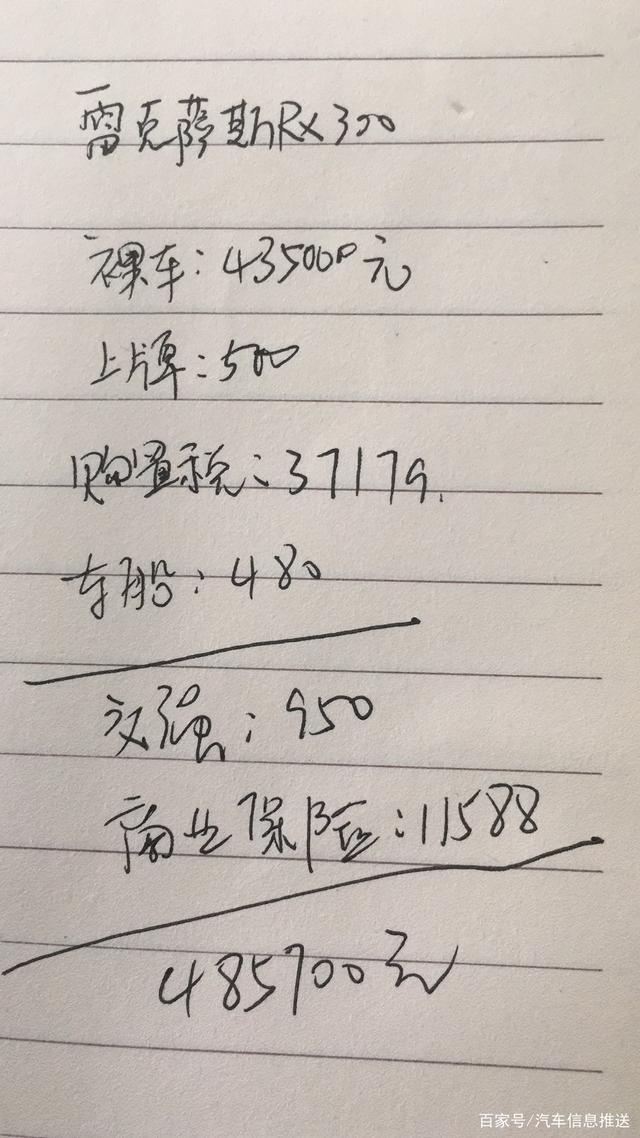 雷克萨斯RX300
裸车：435000元
上牌：500
购置税：37179.
车船：480
交强：950
商业保险：11588
485700元
百家号/汽车信息推送